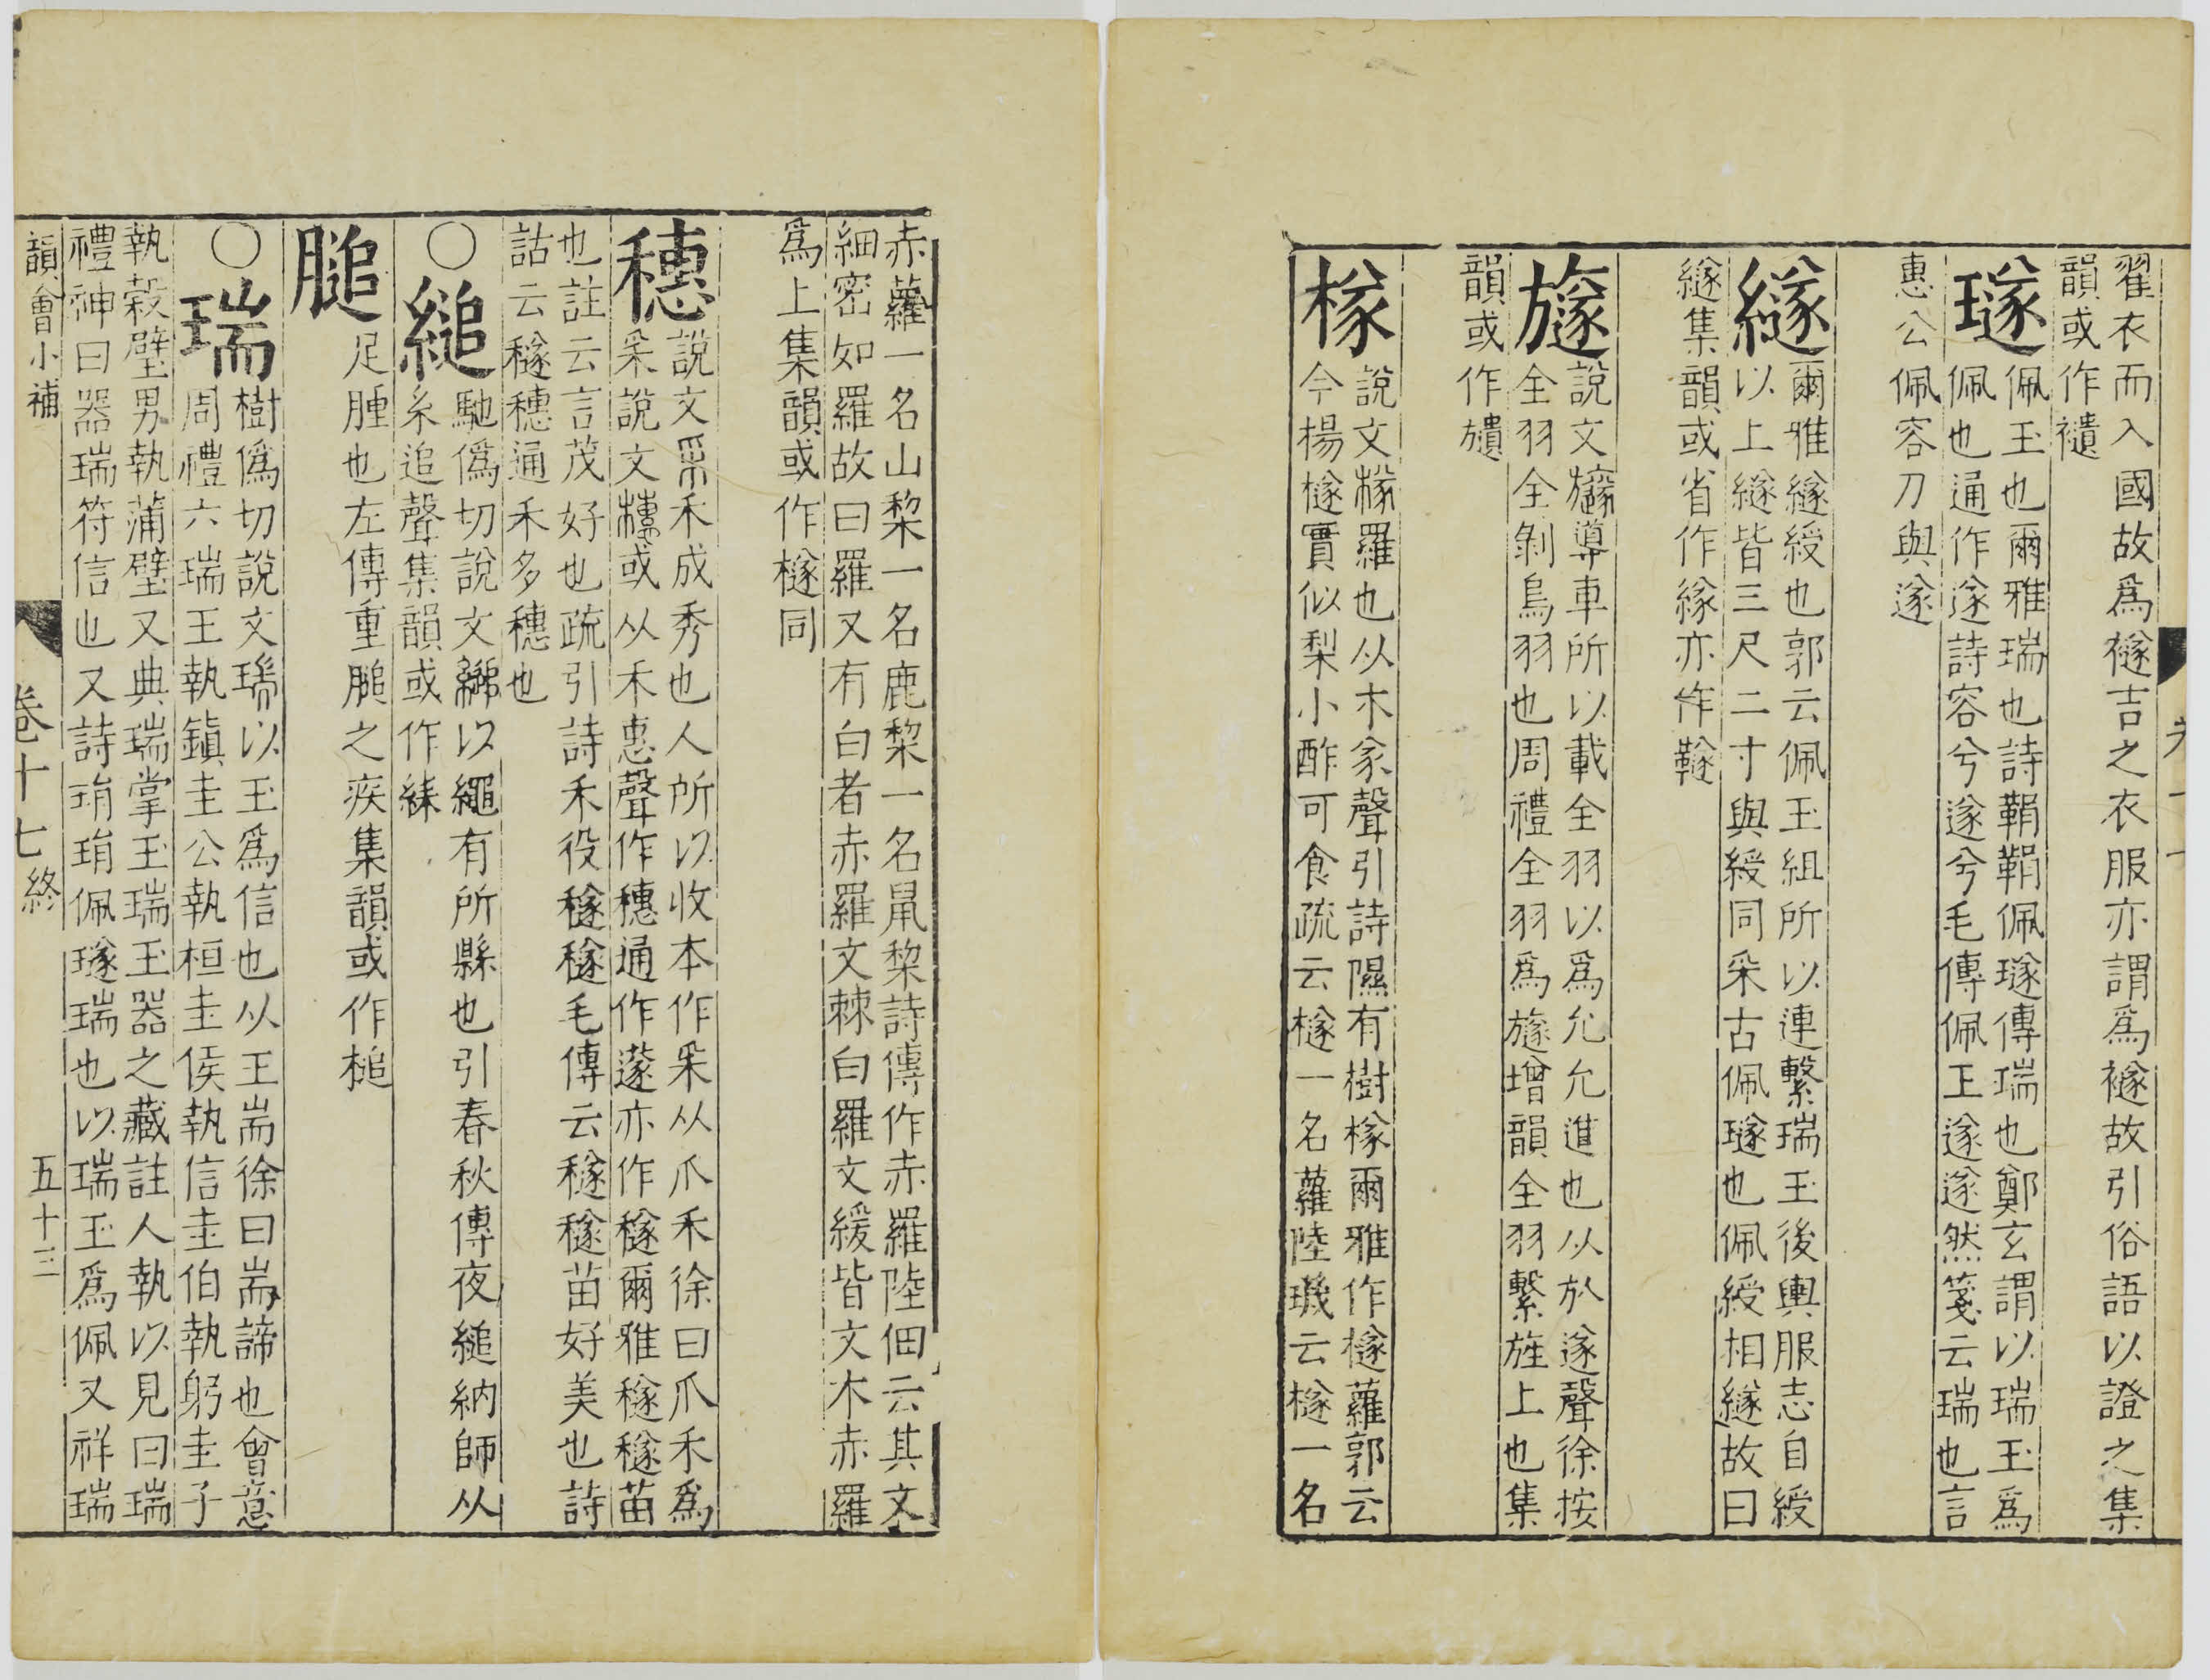 翟衣而入國故爲襚吉之衣服亦謂爲襚故引俗語以證之集
韻或作䙡
璲佩玉也爾雅瑞也詩鞙鞙佩璲傳瑞也鄭玄謂以瑞玉爲
佩也通作遂詩容兮遂兮毛傳佩玉遂遂然箋云瑞也言
惠公佩容刀與遂
繸爾雅繸綬也郭云佩玉組所以連繫瑞玉後輿服志自綬
以上繸皆三尺二寸與綬同采古佩璲也佩綬相繸故曰
繸集韻或省作䋸亦作鐩
旞說文導車所以載全羽以爲允允進也从㫃遂聲徐按
全羽全剝鳥羽也周禮全羽爲旞增韻全羽繫旌上也集
韻或作䍁
㮃說文㮃羅也从木㒸聲引詩隰有樹㮃爾雅作檖蘿郭云
今楊檖實似梨小酢可食疏云檖一名蘿陸璣云檖一名
赤蘿一名山棃一名鹿棃一名鼠棃詩傳作赤羅陸佃云其文
細密如羅故曰羅又有白者赤羅文棘白羅文緩皆文木赤羅
爲上集韻或作檖同
穗說文禾成秀也人所以收本作采从爪禾徐曰爪禾爲
采說文或从禾惠聲作穗通作蓫亦作穟爾雅穟穟苗
也註云言茂好也疏引詩禾役穟穟毛傳云穟穟苗好美也詩
詁云穟穗通禾多穗也
〇縋馳僞切說文以繩有所縣也引春秋傳夜縋納師从
糸追聲集韻或作䋘
膇足腫也左傳重膇之疾集韻或作槌
〇瑞樹僞切說文以玉爲信也从王耑徐曰耑諦也會意
周禮六瑞王執鎭圭公執桓圭侯執信圭伯執躬圭子
執穀璧男執蒲璧又典瑞掌玉瑞玉器之藏註人執以見曰瑞
禮神曰器瑞符信也又詩琄琄佩璲瑞也以瑞玉爲佩又祥瑞
韻會小補 卷十七終 五十三